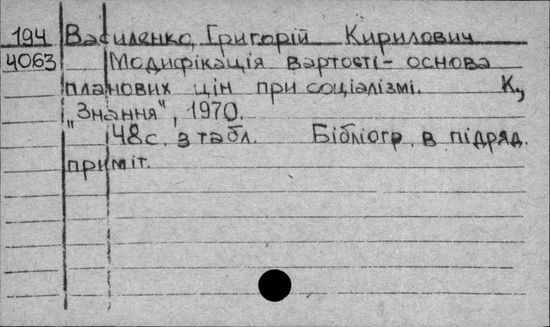 194 Василенко, Григорій Кирилович
4063 Модифікація вартості - основа
планових цін при соціалізмі. К.,
"Знання", 1970.
48с. з табл. Бібліогр. в підряд.
приміт.